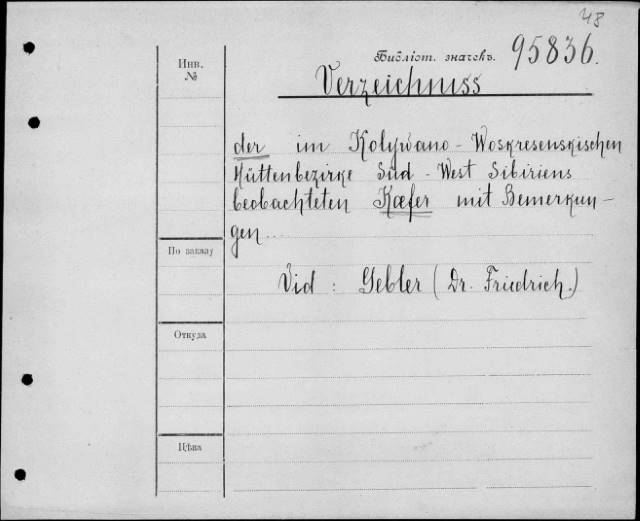 48
Инв.
№
Библіот. значекъ. 95836.
Verzeichniss
der im Kolywano - Woskresenskischen
Hüttenbezirke Süd - West Sibiriens
beobachteten Kæfer mit Bemerkun-
gen...
По заказу
Vid : Gebler (Dr. Friedrich.)
Откуда
Цѣна